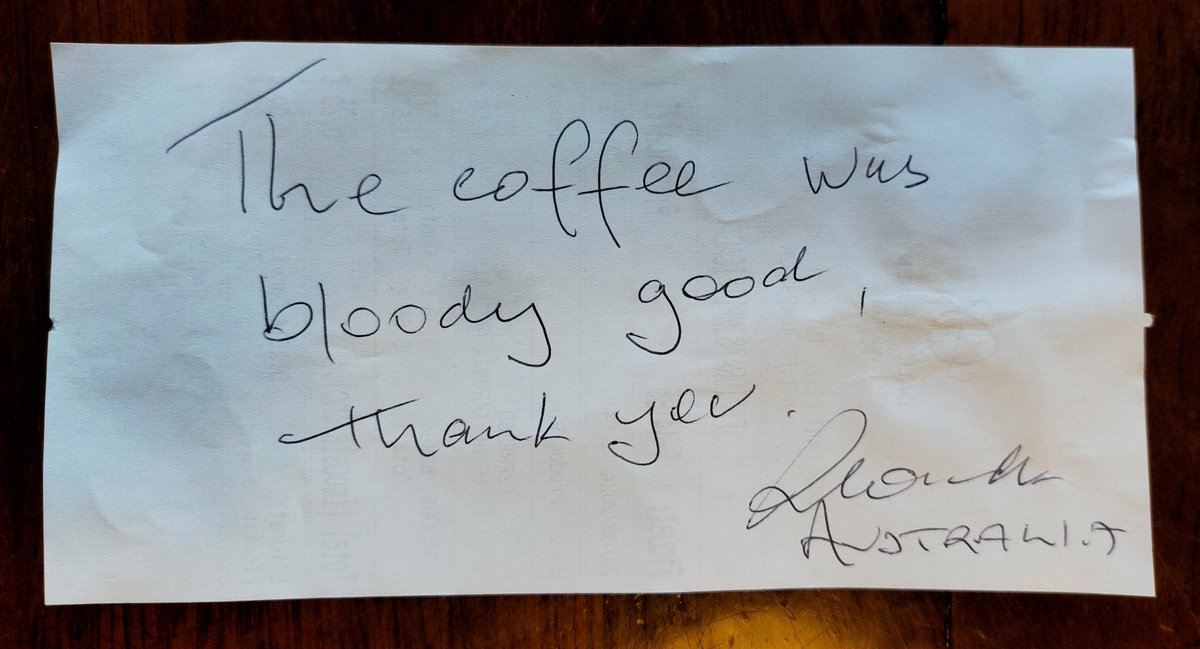 The coffee was
bloody good,
thank you.
AUSTRALIA